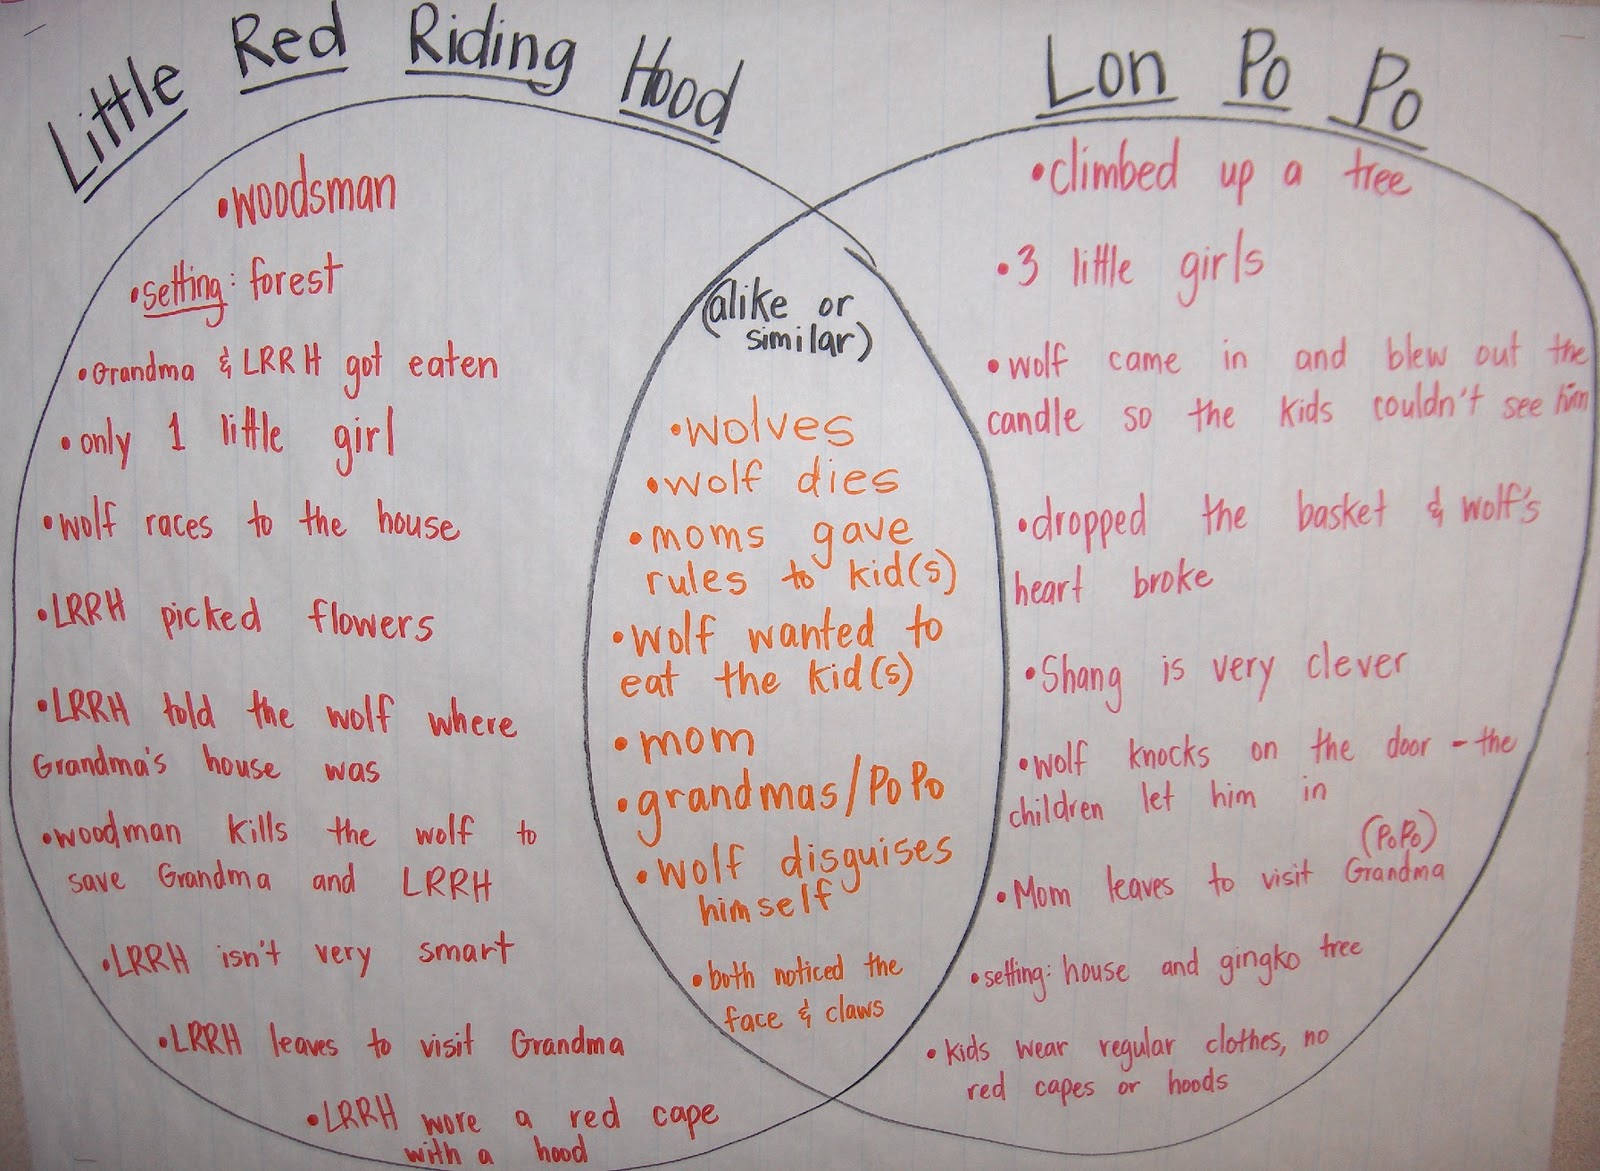 Little Red Riding Hood
•woodsman
•setting: forest
•Grandma & LRRH got eaten
•only 1 little girl
•wolf races to the house
•LRRH picked flowers
•LRRH told the wolf where
Grandma's house was
•woodman kills the wolf to
save Grandma and LRRH
•LRRH isn't very smart
•LRRH leaves to visit Grandma
•LRRH wore a red cape
with a hood
(alike or
similar)
•wolves
•wolf dies
•moms gave
rules to kid(s)
•wolf wanted to
eat the kid(s)
•mom
•grandmas/PoPo
•wolf disguises
himself
•both noticed the
face & claws
Lon Po Po
•climbed up a tree
•3 little girls
•wolf came in and blew out the
candle so the kids couldn't see him
•dropped the basket & wolf's
heart broke
•Shang is very clever
•wolf knocks on the door - the
children let him in
(PoPo)
•Mom leaves to visit Grandma
•setting: house and gingko tree
•kids wear regular clothes, no
red capes or hoods